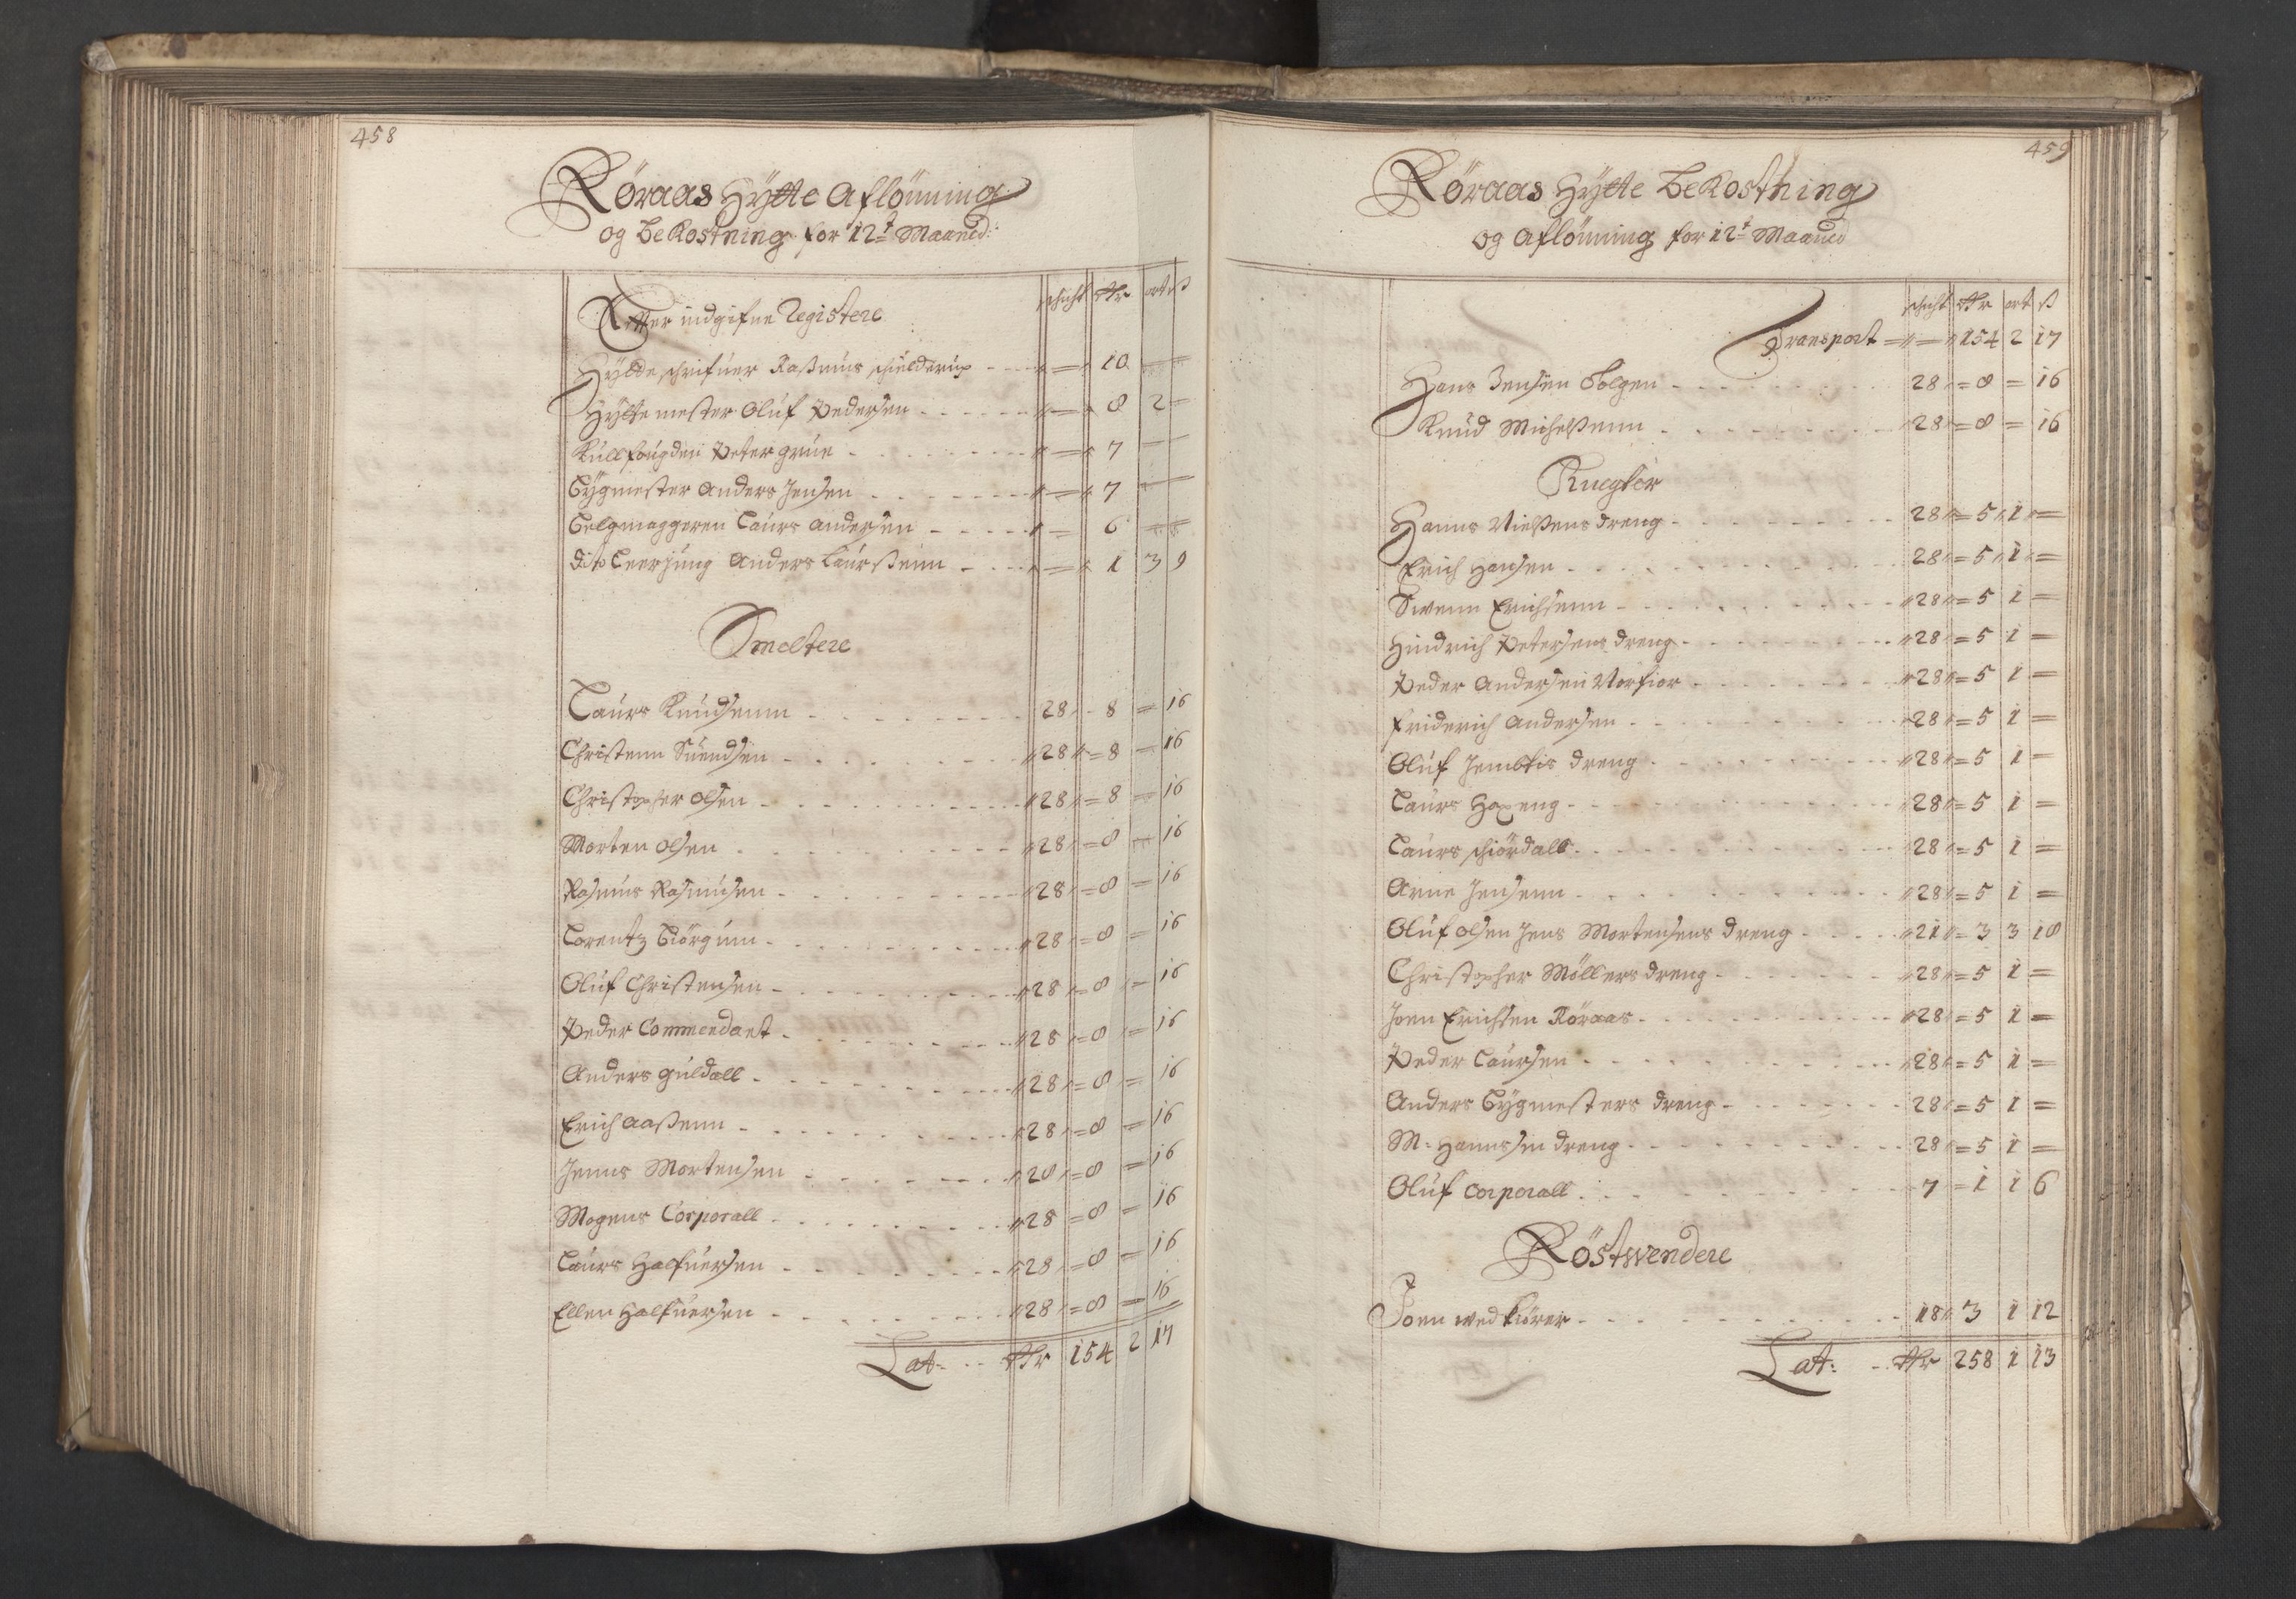 458
Röraas Hÿtte Aflönning
og Bekostning for 12t Maaned:
schicht Rdr ort ß
Efter indgifne Registere
Hÿtteschrifuer Rasmus Schielderup - - - " = " 10 = =
Hÿttemester Oluf Pedersen - - - " = " 8 2 =
Kullfougden Peter Grüe - - - " = " 7 = =
Bÿgmester Anders Jensen - - - " = " 7 = =
Belgmaggeren Laurs Andersen - - - " = 6 = =
dito Leerjung Anders Laurssenn - - - " = " 1 3 9
Smeltere
Laurs Knudsenn - - - 28 " - 8 = 16
Christenn Suendsen - - - " 28 " = 8 = 16
Christopher Olsen - - - " 28 " = 8 = 16
Morten Olsen - - - " 28 " = 8 = 16
Rasmus Rasmusen - - - " 28 " = 8 = 16
Lorentz Giörgum - - - " 28 " = 8 = 16
Oluf Christensen - - - " 28 " = 8 " = 16
Peder Commendant - - - " 28 " = 8 " = 16
Anders Guldall - - - " 28 " = 8 " = 16
Erich Aassenn - - - " 28 " = 8 = 16
Jenns Mortensen - - - " 28 " = 8 = 16
Mogens Corporall - - - " 28 = 8 = 16
Laurs Halfuersen - - - " 28 " = 8 = 16
Ellen Halfuersen - - - " 28 " = 8 = 16
Lat: - - Rdr 154 2 17
459
Röraas Hÿtte Bekostning
og Aflönning for 12t Maaned
schicht Rdr ort ß
Transport = " = " 154 2 17
Hans Jensen Solgen - - - 28 " = 8 = 16
Knud Michelsenn - - - " 28 " = 8 = 16
Knegter
Hanns Nielsens dreng - - - 28 " = 5 " 1 " =
Erich Hansen - - - 28 " = 5 " 1 " =
Swenn Erichsenn - - - " 28 " = 5 1 =
Hindrich Petersens dreng - - - " 28 " = 5 1 =
Peder Andersen - - - " 28 " = 5 1 =
Friderich Andersen - - - " 28 " = 5 1 =
Oluf Jembtis dreng - - - " 28 " = 5 1 =
Laurs Haxeng - - - " 28 " = 5 1 =
Laurs Schiördall - - - " 28 " = 5 1 =
Arne Jensenn - - - " 28 " = 5 1 =
Oluf Olsen Jens Mortensens dreng - - - " 21 " = 3 3 18
Christopher Möllers dreng - - - " 28 " = 5 1 =
Joen Erichsen Röraas - - - " 28 " = 5 1 =
Peder Laursen - - - " 28 " = 5 1 =
Anders Bÿgmesters dreng - - - 28 " = 5 1 =
M: Hannssen dreng - - - 28 " = 5 1 =
Oluf Corporall - - - 7 = 1 1 6
Röstwendere
Joen wedkiörer - - - 18 " 3 1 12
Lat: - Rdr 258 1 13